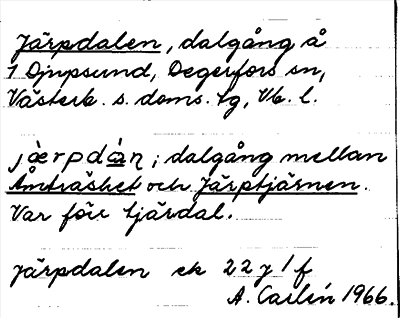 Järpdalen, dalgång å
1 Djupsund, Degerfors sn,
Västerb. s. doms. tg, Vb. l.
jàrpdán; dalgång mellan
Åmträsket och Järptjärnen.
Var förr tjärdal.
Järpdalen ek 22 J 1 f
A. Carlén 1966.